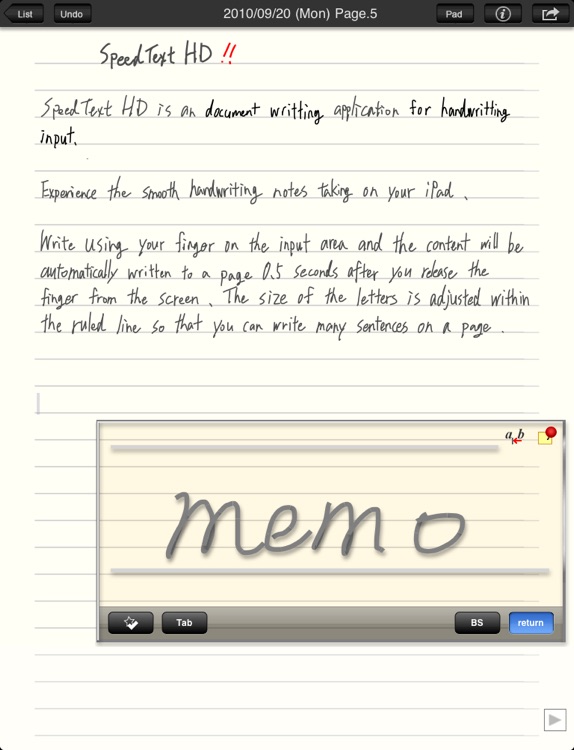 List Undo 2010/09/20 (Mon) Page.5 Pad
SpeedText HD !!
SpeedText HD is an document writting application for handwritting
input.
Experience the smooth handwriting notes taking on your iPad.
Write using your finger on the input area and the content will be
automatically written to a page 0.5 seconds after you release the
finger from the screen. The size of the letters is adjusted within
the ruled line so that you can write many sentences on a page.
a b
memo
Tab BS return